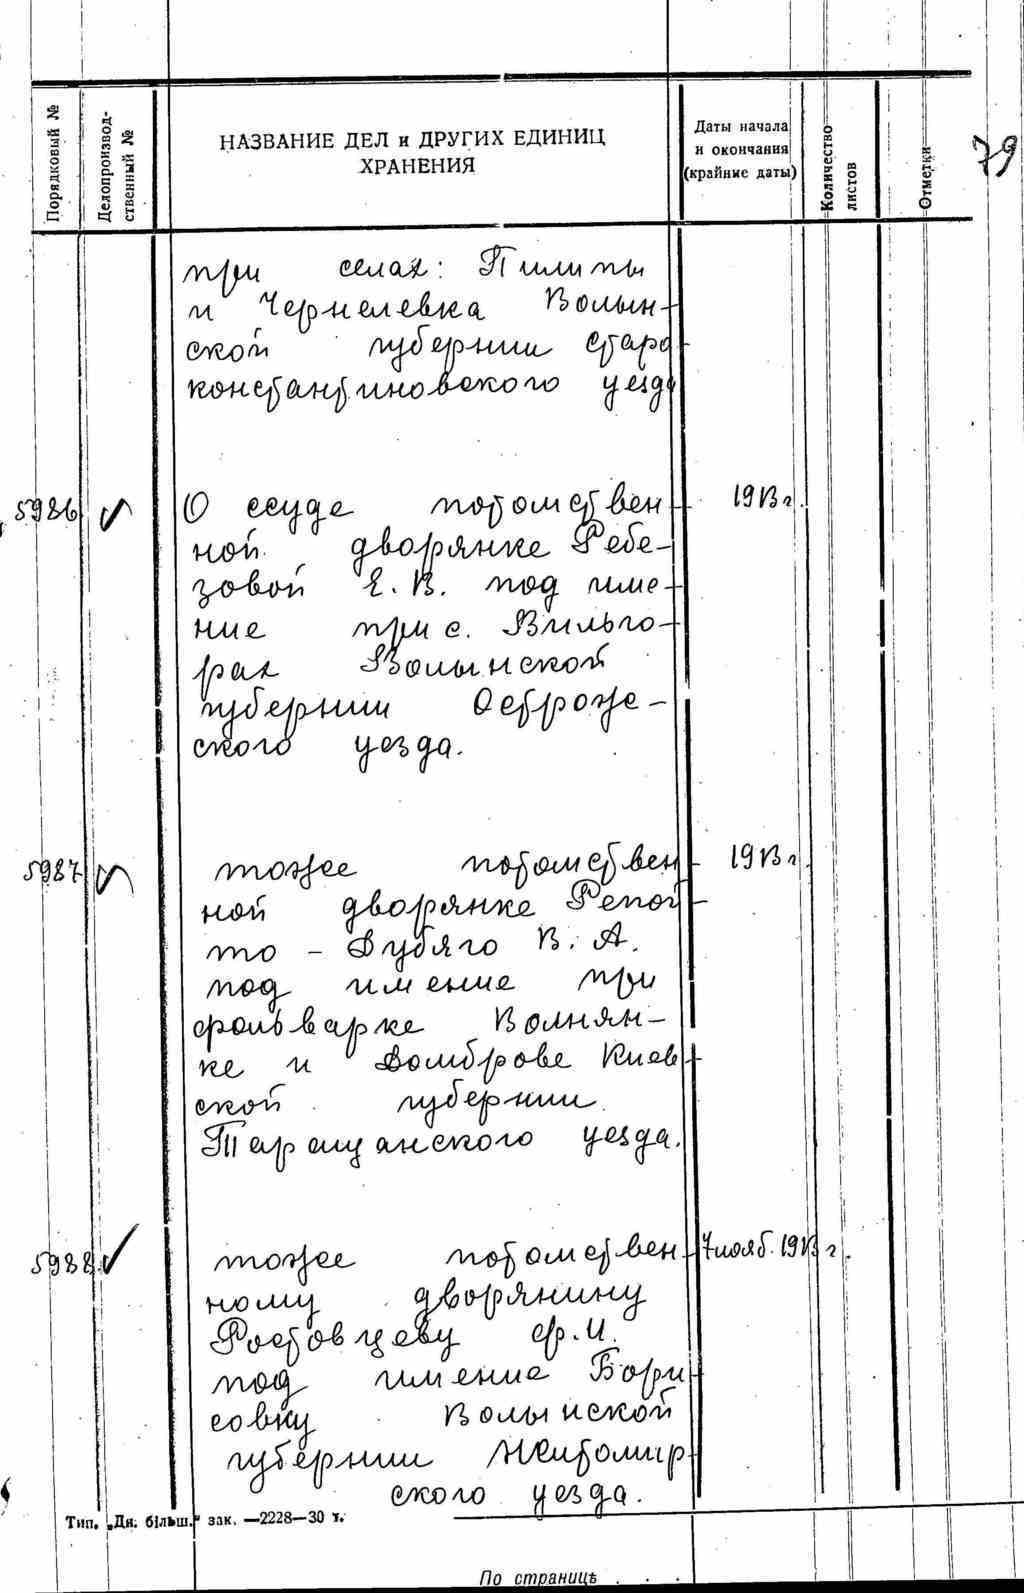 79
Порядковый №
Делопроизвод-
ственный №
НАЗВАНИЕ ДЕЛ и ДРУГИХ ЕДИНИЦ
ХРАНЕНИЯ
Даты начала
и окончания
(крайние даты)
Количество
листов
Отметки
при селах: Пилипы
и Чернелевка Волын-
ской губернии старо-
константиновского уезда
5986 О ссуде потомствен- 1913 г.
ной дворянке Ребе-
зовой Е. В. под име-
ние при с. Вильго-
рах Волынской
губернии Острожс-
ского уезда.
5987 тоже потомствен- 1913 г.
ной дворянке Репой-
то - Дубяго В. А.
под имение при
фольварке Волнян-
ке и Домброве Киев-
ской губернии
Таращанского уезда.
5988 тоже потомствен- 7 нояб. 1913 г.
ному дворянину
Ростовцеву Ф. И.
под имение Бори
совку Волынской
губернии Житомир-
ского уезда.
Тип. „Дн. більш." зак. —2228—30 т.
По страницѣ . . .